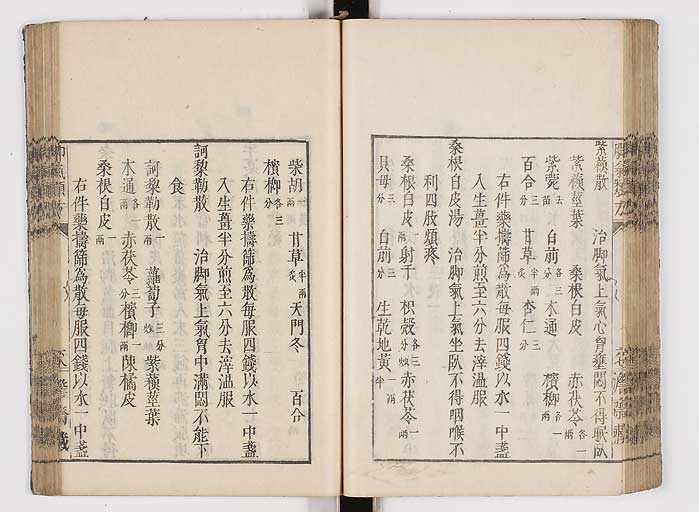 紫蘇散　治脚氣上氣心胷壅悶不得眠臥
紫蘇莖葉　桑根白皮　赤茯苓各一兩
紫菀去苗　白前各三分　木通　檳榔各一兩
百合三分　甘草半兩炙　杏仁三分
右件藥擣篩爲散每服四錢以水一中盞
入生薑半分煎至六分去滓溫服
桑根白皮湯　治脚氣上氣坐臥不得咽喉不
利四肢煩疼
桑根白皮一兩　射干　枳殼各三分麩炒　赤茯苓一兩
貝母三分　白前三分　生乾地黃一兩半
柴胡一兩　甘草半兩炙　天門冬　百合
檳榔各三分
右件藥擣篩爲散每服四錢以水一中盞
入生薑半分煎至六分去滓溫服
訶黎勒散　治脚氣上氣胷中滿悶不能下
食
訶黎勒散一兩　蘿蔔子三分炒　紫蘇莖葉
木通各一兩　赤茯苓三分　檳榔一兩　陳橘皮
桑根白皮一兩
右件藥擣篩爲散每服四錢以水一中盞